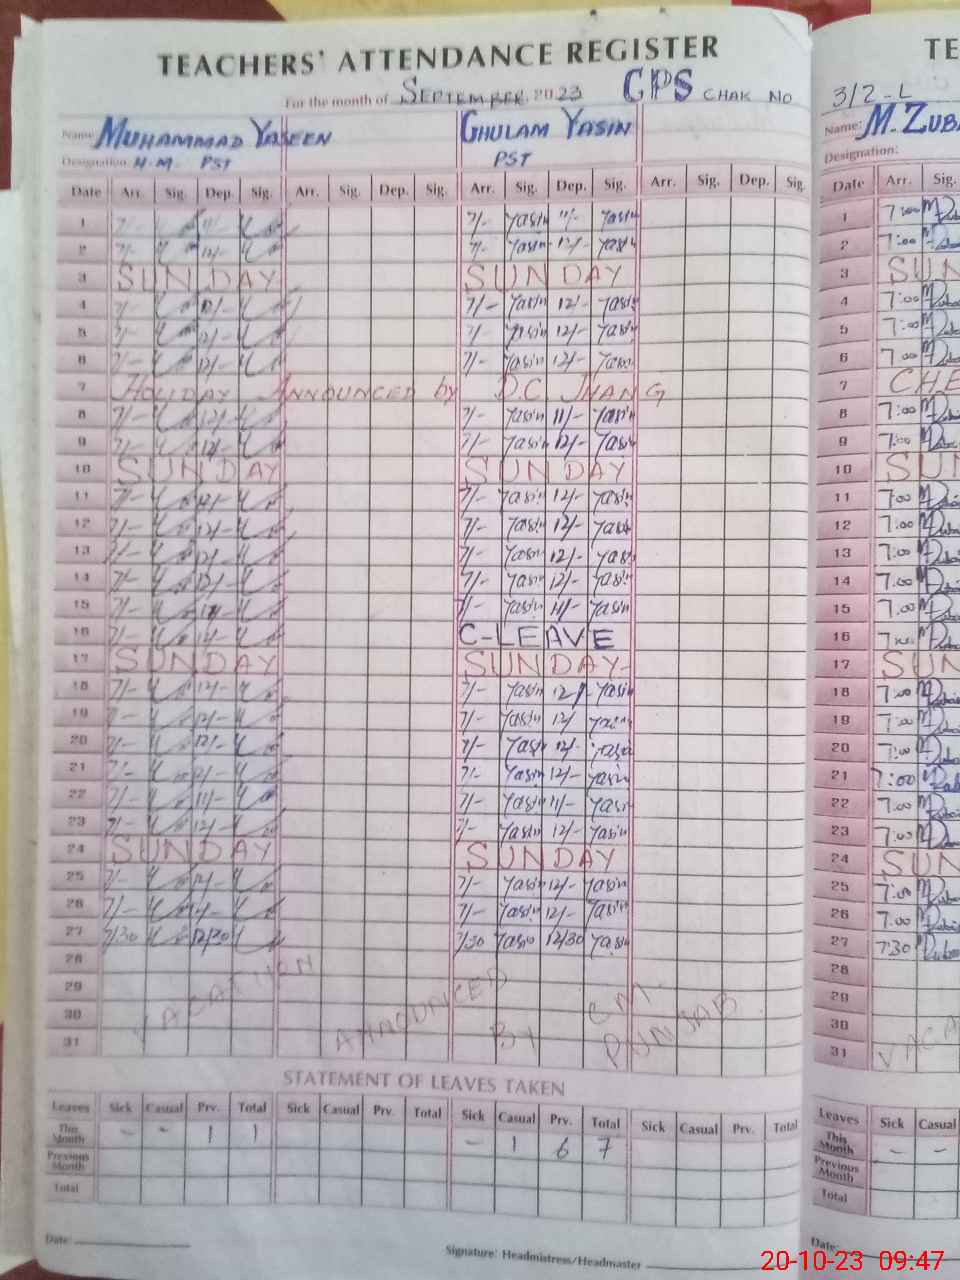 TEACHERS' ATTENDANCE REGISTER
For the month of SEPTEMBER. 2023 GPS CHAK NO 3/2-L
Name: MUHAMMAD YASEEN GHULAM YASIN Name: M. ZUBA
Designation: H.M. PST PST Designation:
Date Arr. Sig. Dep. Sig. Arr. Sig. Dep. Sig. Arr. Sig. Dep. Sig. Arr. Sig. Dep. Sig. Date Arr. Sig.
1 7/- 11/- 7/- Yasin 11/- Yasin 1 7:00
2 7/- 12/- 7/- Yasin 12/- Yasin 2 7:00
3 SUNDAY SUNDAY 3 SUN
4 7/- 12/- 7/- Yasin 12/- Yasin 4 7:00
5 7/- 12/- 7/- Yasin 12/- Yasin 5 7:00
6 7/- 12/- 7/- Yasin 12/- Yasin 6 7:00
7 HOLIDAY ANNOUNCED by D.C JHANG 7 CHE
8 7/- 12/- 7/- Yasin 11/- Yasin 8 7:00
9 7/- 12/- 7/- Yasin 12/- Yasin 9 7:00
10 SUNDAY SUNDAY 10 SUN
11 7/- 12/- 7/- Yasin 12/- Yasin 11 7:00
12 7/- 12/- 7/- Yasin 12/- Yasin 12 7:00
13 7/- 12/- 7/- Yasin 12/- Yasin 13 7:00
14 7/- 12/- 7/- Yasin 12/- Yasin 14 7:00
15 7/- 11/- 7/- Yasin 11/- Yasin 15 7:00
16 7/- 12/- C-LEAVE 16
17 SUNDAY SUNDAY 17 SUN
18 7/- 12/- 7/- Yasin 12/- Yasin 18 7:00
19 7/- 12/- 7/- Yasin 12/ Yasin 19 7:00
20 7/- 12/- 7/- Yasin 12/- Yasin 20 7:00
21 7/- 12/- 7/- Yasin 12/- Yasin 21 7:00
22 7/- 11/- 7/- Yasin 11/- Yasin 22 7:00
23 7/- 12/- 7/- Yasin 12/- Yasin 23 7:00
24 SUNDAY SUNDAY 24 SUN
25 7/- 12/- 7/- Yasin 12/- Yasin 25 7:00
26 7/- 7/- Yasin 12/- Yasin 26 7:00
27 7/30 12/30 7/30 Yasin 12/30 Yasin 27 7:30
28 28
29 29
30 30
31 31
VACATION ANNOUNCED BY CM. PUNJAB VACA
STATEMENT OF LEAVES TAKEN
Leaves Sick Casual Prv. Total Sick Casual Prv. Total Sick Casual Prv. Total Sick Casual Prv. Total Leaves Sick Casual
This Month - - 1 1 - 1 6 7 This Month - -
Previous Month Previous Month
Total Total
Date: Signature: Headmistress/Headmaster Date:
20-10-23 09:47